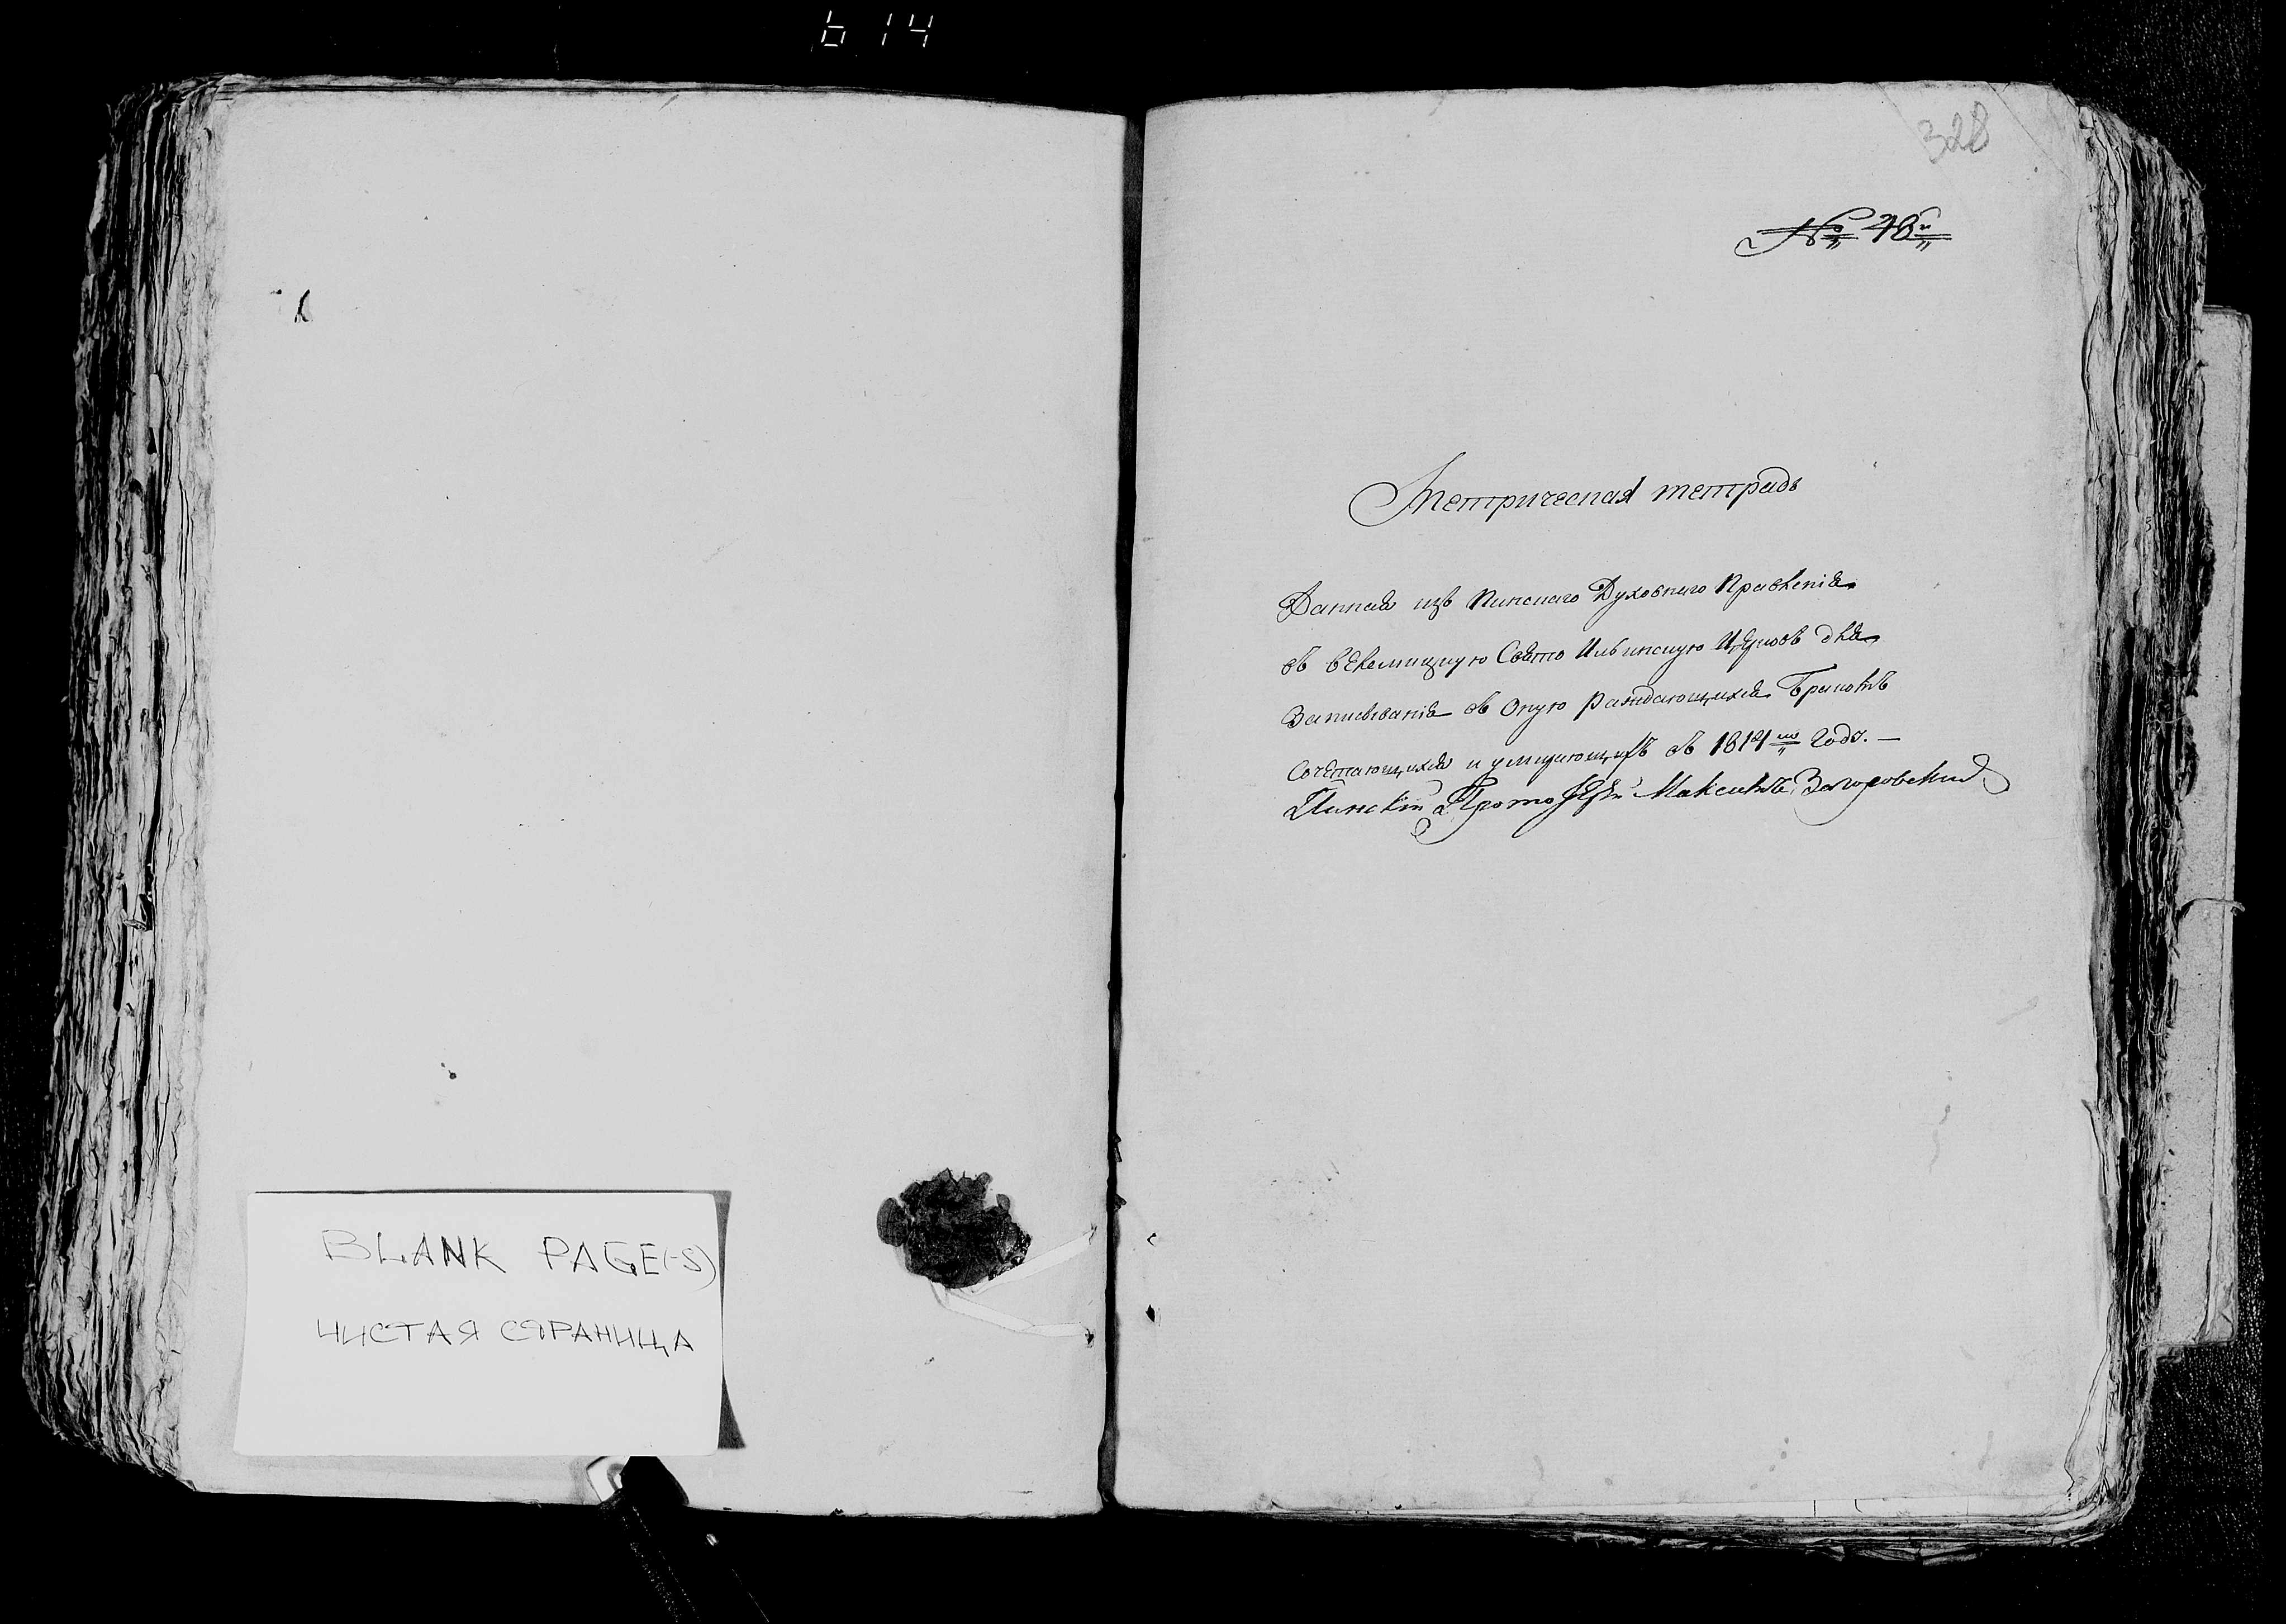 614
BLANK PAGE(-S)
ЧИСТАЯ СТРАНИЦА
328
№ 48й
Метрическая тетрадь
Данная изъ Пинскаго Духовнаго Правленія
въ Велемицкую Свято Ильинскую Церковь для
Записыванія въ оную Раждающихся Бракомъ
Сочетающихся и умирающихъ въ 1814мъ Годѣ. —
Пинскій Протоіерей Максимъ Загоровскій